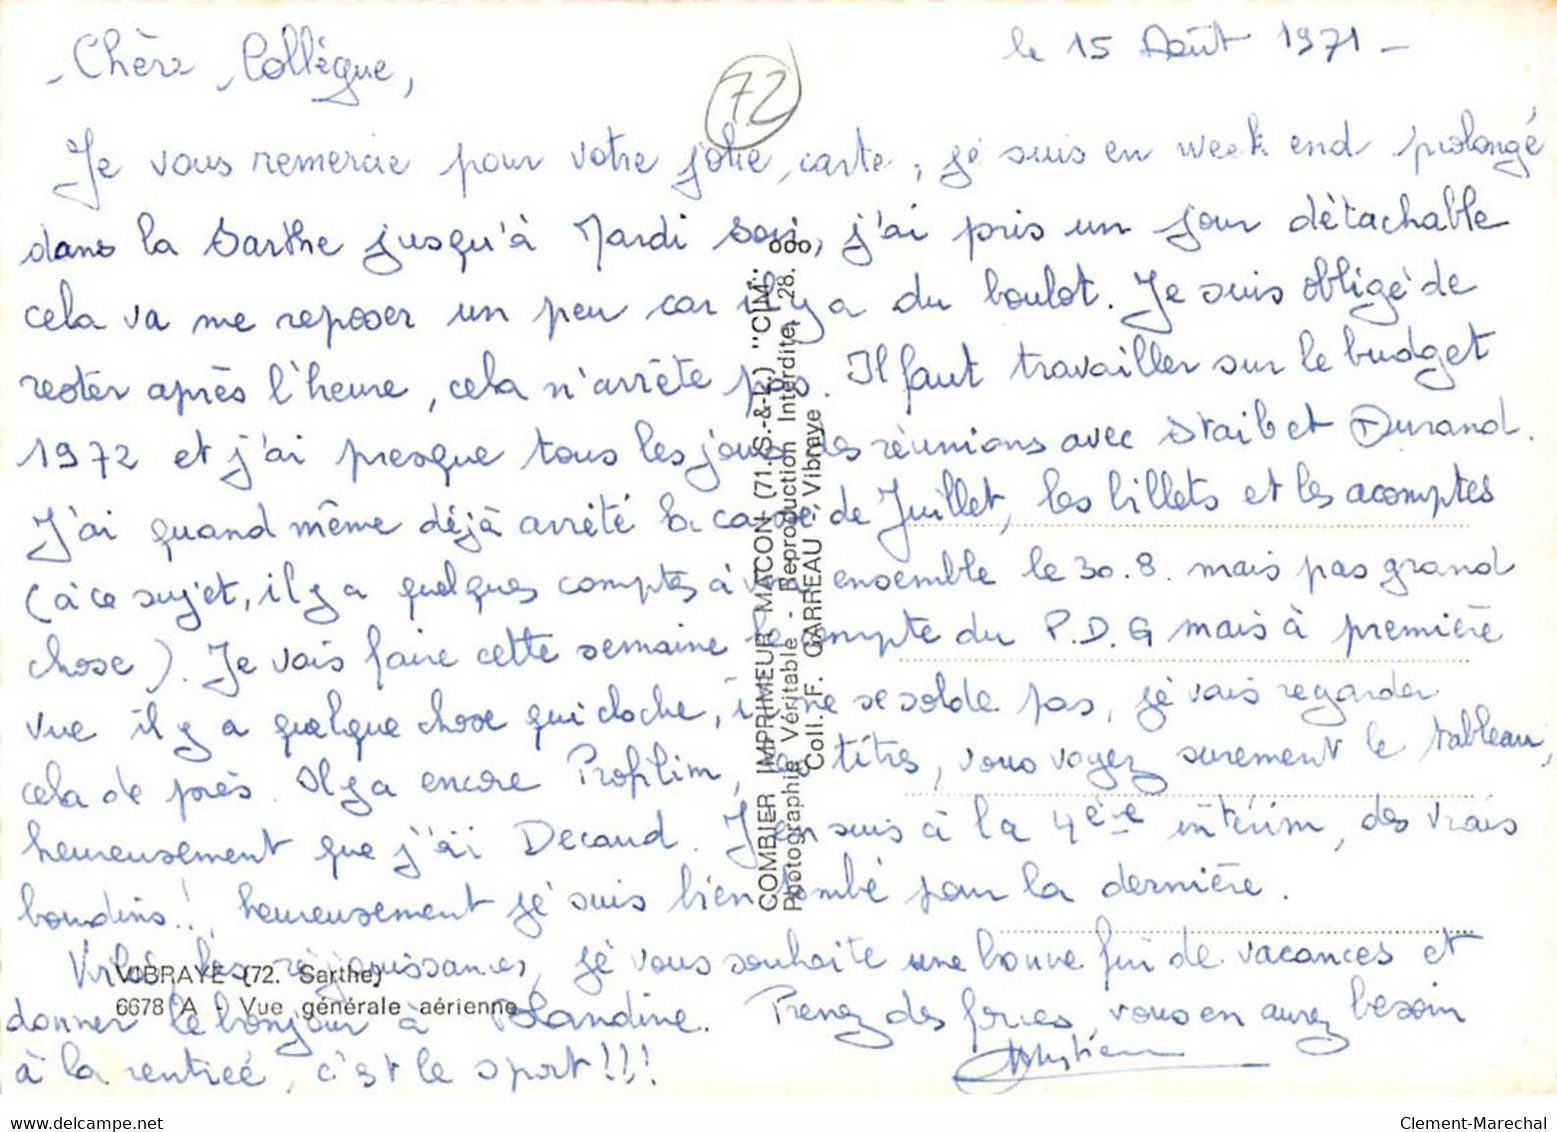 le 15 Août 1971 -
Chère Collègue,
72
Je vous remercie pour votre jolie carte, je suis en week end prolongé
dans la Sarthe jusqu'à Mardi soir, j'ai pris un jour détachable
cela va me reposer un peu car il y a du boulot. Je suis obligé de
rester après l'heure, cela n'arrête pas. Il faut travailler sur le budget
1972 et j'ai presque tous les jours des réunions avec Staib et Durand.
J'ai quand même déjà arrêté la caisse de Juillet, les billets et les acomptes
(à ce sujet, il y a quelques comptes à voir ensemble le 30.8. mais pas grand
chose). Je vais faire cette semaine le compte du P.D.G mais à première
vue il y a quelque chose qui cloche, il ne se solde pas, je vais regarder
cela de près. Il y a encore Profilim, les titres, vous voyez surement le tableau,
heureusement que j'ai Decaud. J'en suis à la 4ème intérim, des vrais
boudins!!, heureusement je suis bien tombé pour la dernière.
les réjouissances, je vous souhaite une bonne fin de vacances et
donner le bonjour à Blandine. Prenez des forces, vous en aurez besoin
à la rentrée, c'est le sport!!!
Christian
COMBIER IMPRIMEUR MACON (71.S.-&-L.) "CIM"
Photographie Véritable - Reproduction Interdite 28.
Coll. F. GARREAU -, Vibraye.
VIBRAYE (72. Sarthe)
6678 A - Vue générale aérienne
www.delcampe.net
Clement-Marechal